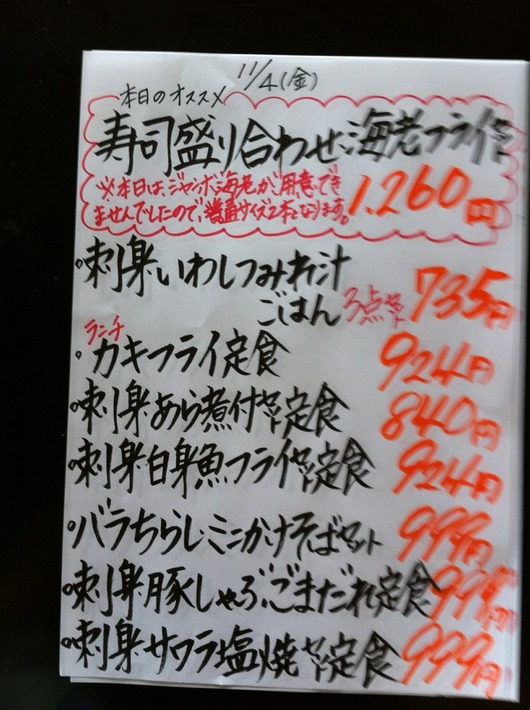 11/4(金)
本日のオススメ
寿司盛り合わせ、海老フライ付
※本日は、ジャンボ海老が用意でき
ませんでしたので、普通サイズ2本となります。
1.260円
・刺身、いわしつみれ汁
ごはん 3点セット 735円
ランチ
・カキフライ定食 924円
・刺身、あら煮付セット定食 840円
・刺身、白身魚フライセット定食 924円
・バラちらし、ミニかけそばセット 999円
・刺身、豚しゃぶ、ごまだれ定食 999円
・刺身、サワラ塩焼セット定食 999円